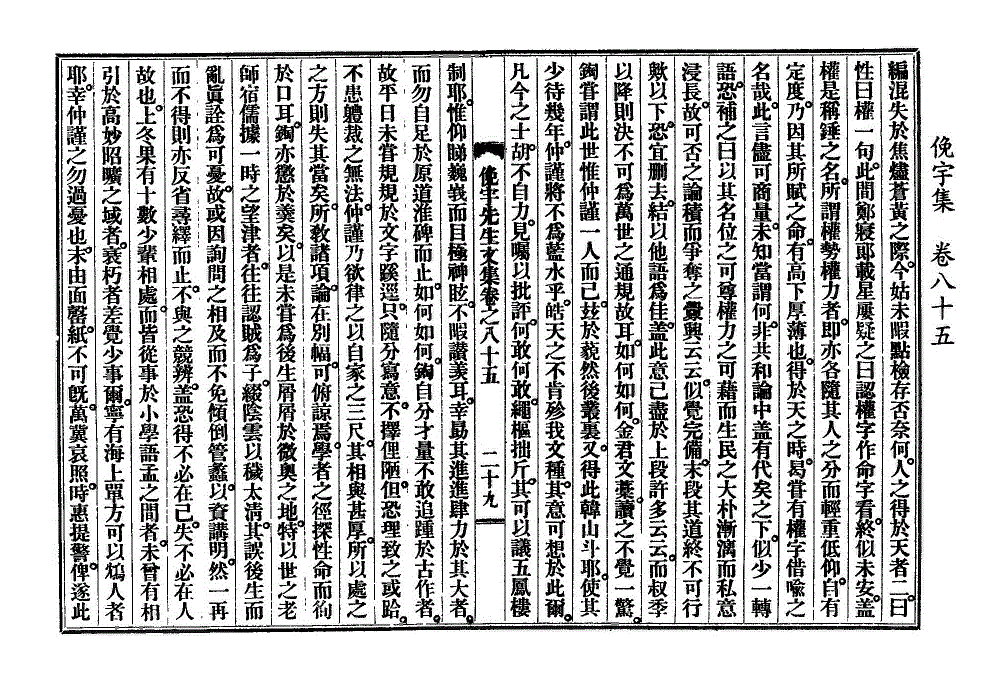 俛宇集　卷八十五
編混失於焦爐蒼黃之際。今姑未暇點檢存否奈何。人之得於天者二。曰
性曰權一句。此間鄭寢郞載星屢疑之曰認權字作命字看。終似未安。盖
權是稱錘之名。所謂權勢權力者。卽亦各隨其人之分而輕重低仰。自有
定度。乃因其所賦之命。有高下厚薄也。得於天之時。曷嘗有權字借喩之
名哉。此言儘可商量。未知當謂何。非共和論中盖有代矣之下。似少一轉
語。恐補之曰以其名位之可尊權力之可藉而生民之大朴漸漓而私意
浸長。故可否之論積而爭奪之釁興云云。似覺完備。末段其道終不可行
歟以下。恐宜刪去。結以他語爲佳。盖此意已盡於上段許多云云。而叔季
以降則決不可爲萬世之通規故耳。如何如何。金君文藁。讀之不覺一驚。
鋾嘗謂此世惟仲謹一人而已。玆於藐然後叢裏。又得此韓山斗耶。使其
少待幾年。仲謹將不爲藍水乎。皓天之不肯殄我文種。其意可想於此爾。
凡今之士胡不自力。見囑以批評何敢何敢。繩樞拙斤。其可以議五鳳樓
俛宇先生文集卷之八十五　二十九
制耶。惟仰睇巍峩而目極神眩。不暇讚美耳。幸勖其進進肆力於其大者。
而勿自足於原道淮碑而止。如何如何。鋾自分才量不敢追踵於古作者。
故平日未嘗規規於文字蹊逕。只隨分寫意。不擇俚陋。但恐理致之或跲。
不患軆裁之無法。仲謹乃欲律之以自家之三尺。其相與甚厚。所以處之
之方則失其當矣。所敎諸項。論在別幅。可俯諒焉。學者之徑探性命而徇
於口耳。鋾亦懲於羹矣。以是未嘗爲後生屑屑於微奥之地。特以世之老
師宿儒據一時之望津者。往往認賊爲子。綴陰雲以穢太淸。其誤後生而
亂眞詮爲可憂。故或因詢問之相及而不免傾倒管蠡。以資講明。然一再
而不得則亦反省尋繹而止。不與之競辨。盖恐得不必在己。失不必在人
故也。上冬果有十數少輩相處。而皆從事於小學語孟之間者。未曾有相
引於高妙昭曠之域者。衰朽者差覺少事爾。寧有海上單方可以鴆人者
耶。幸仲謹之勿過憂也。末由面罄。紙不可旣。萬冀哀照。時惠提警。俾遂此